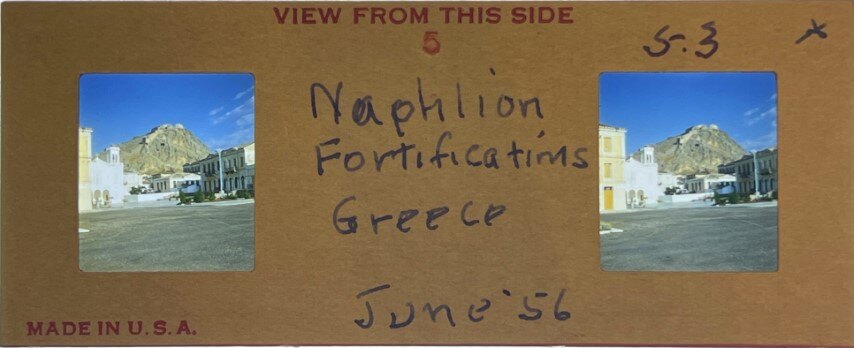 VIEW FROM THIS SIDE
5
5.3 x
Naphlion
Fortifications
Greece
June '56
MADE IN U.S.A.